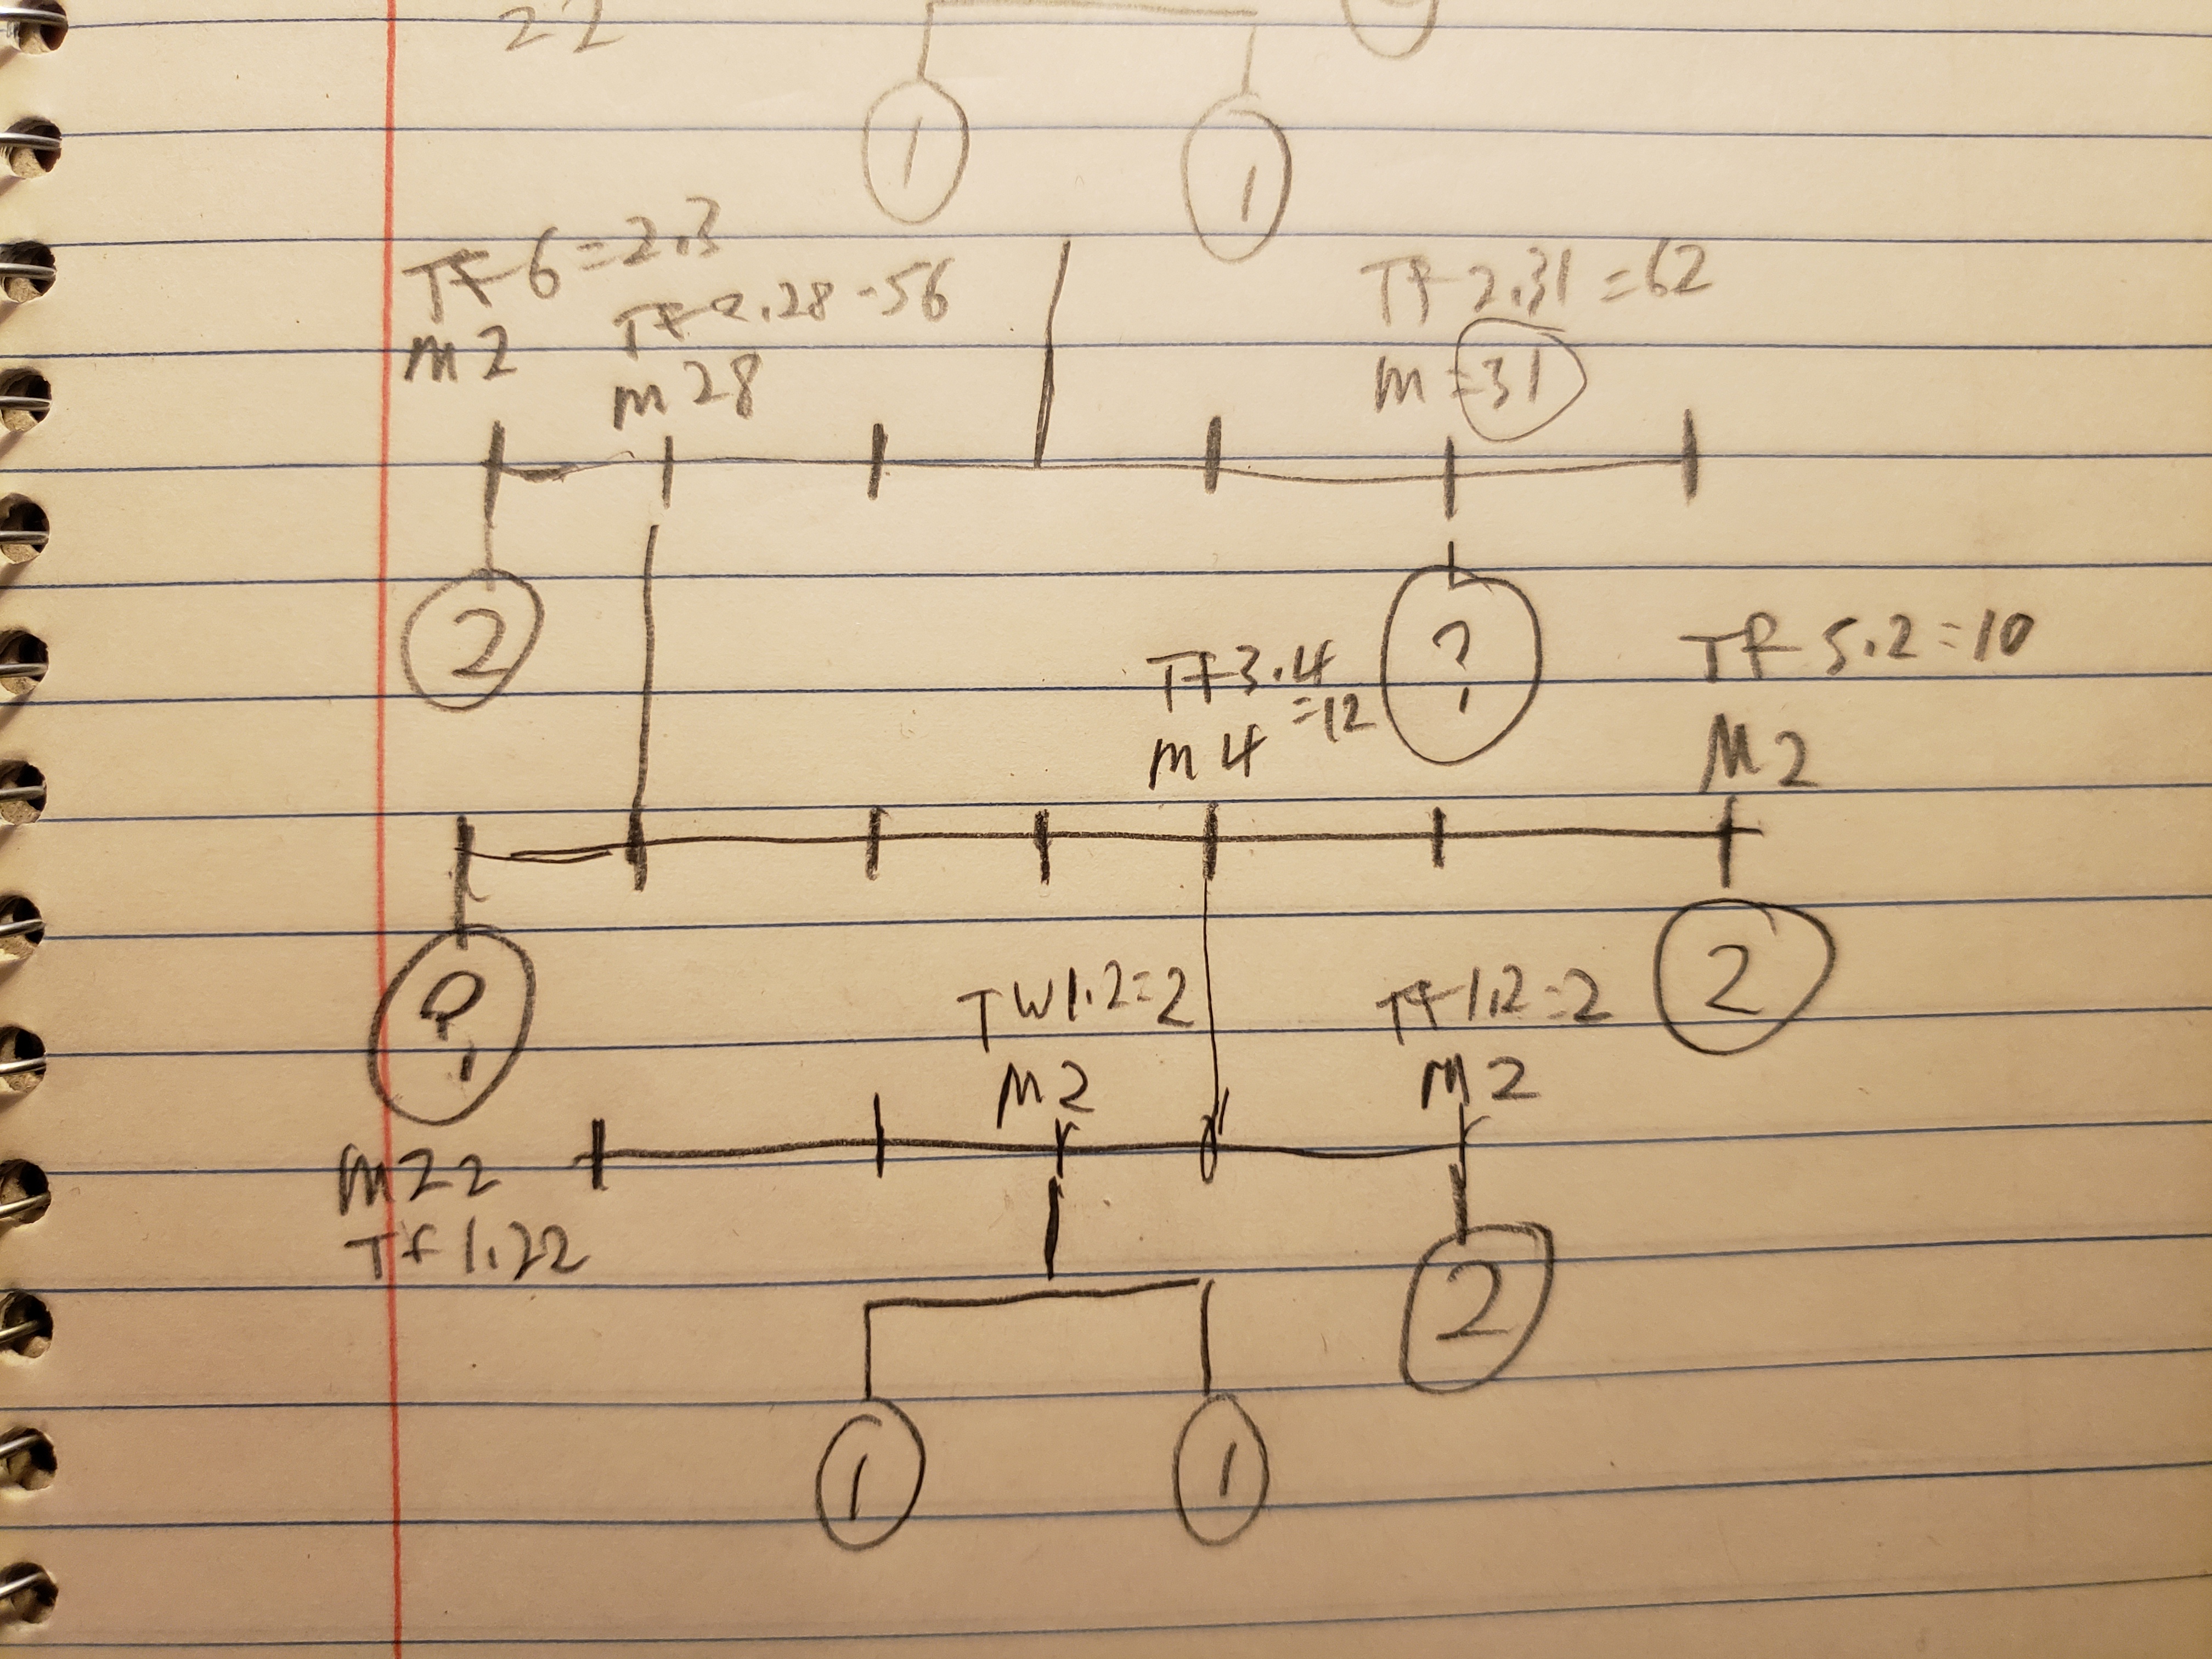 22
1 1
Tf 6 = 2.3
m 2
Tf 2.28 = 56
m 28
Tf 2.31 = 62
m = 31
2
?
Tf 3.4
= 12
m 4
Tf 5.2 = 10
M 2
?
2
m 22
Tf 1.22
TW 1.2 = 2
M 2
Tf 1.2 = 2
M 2
2
1 1